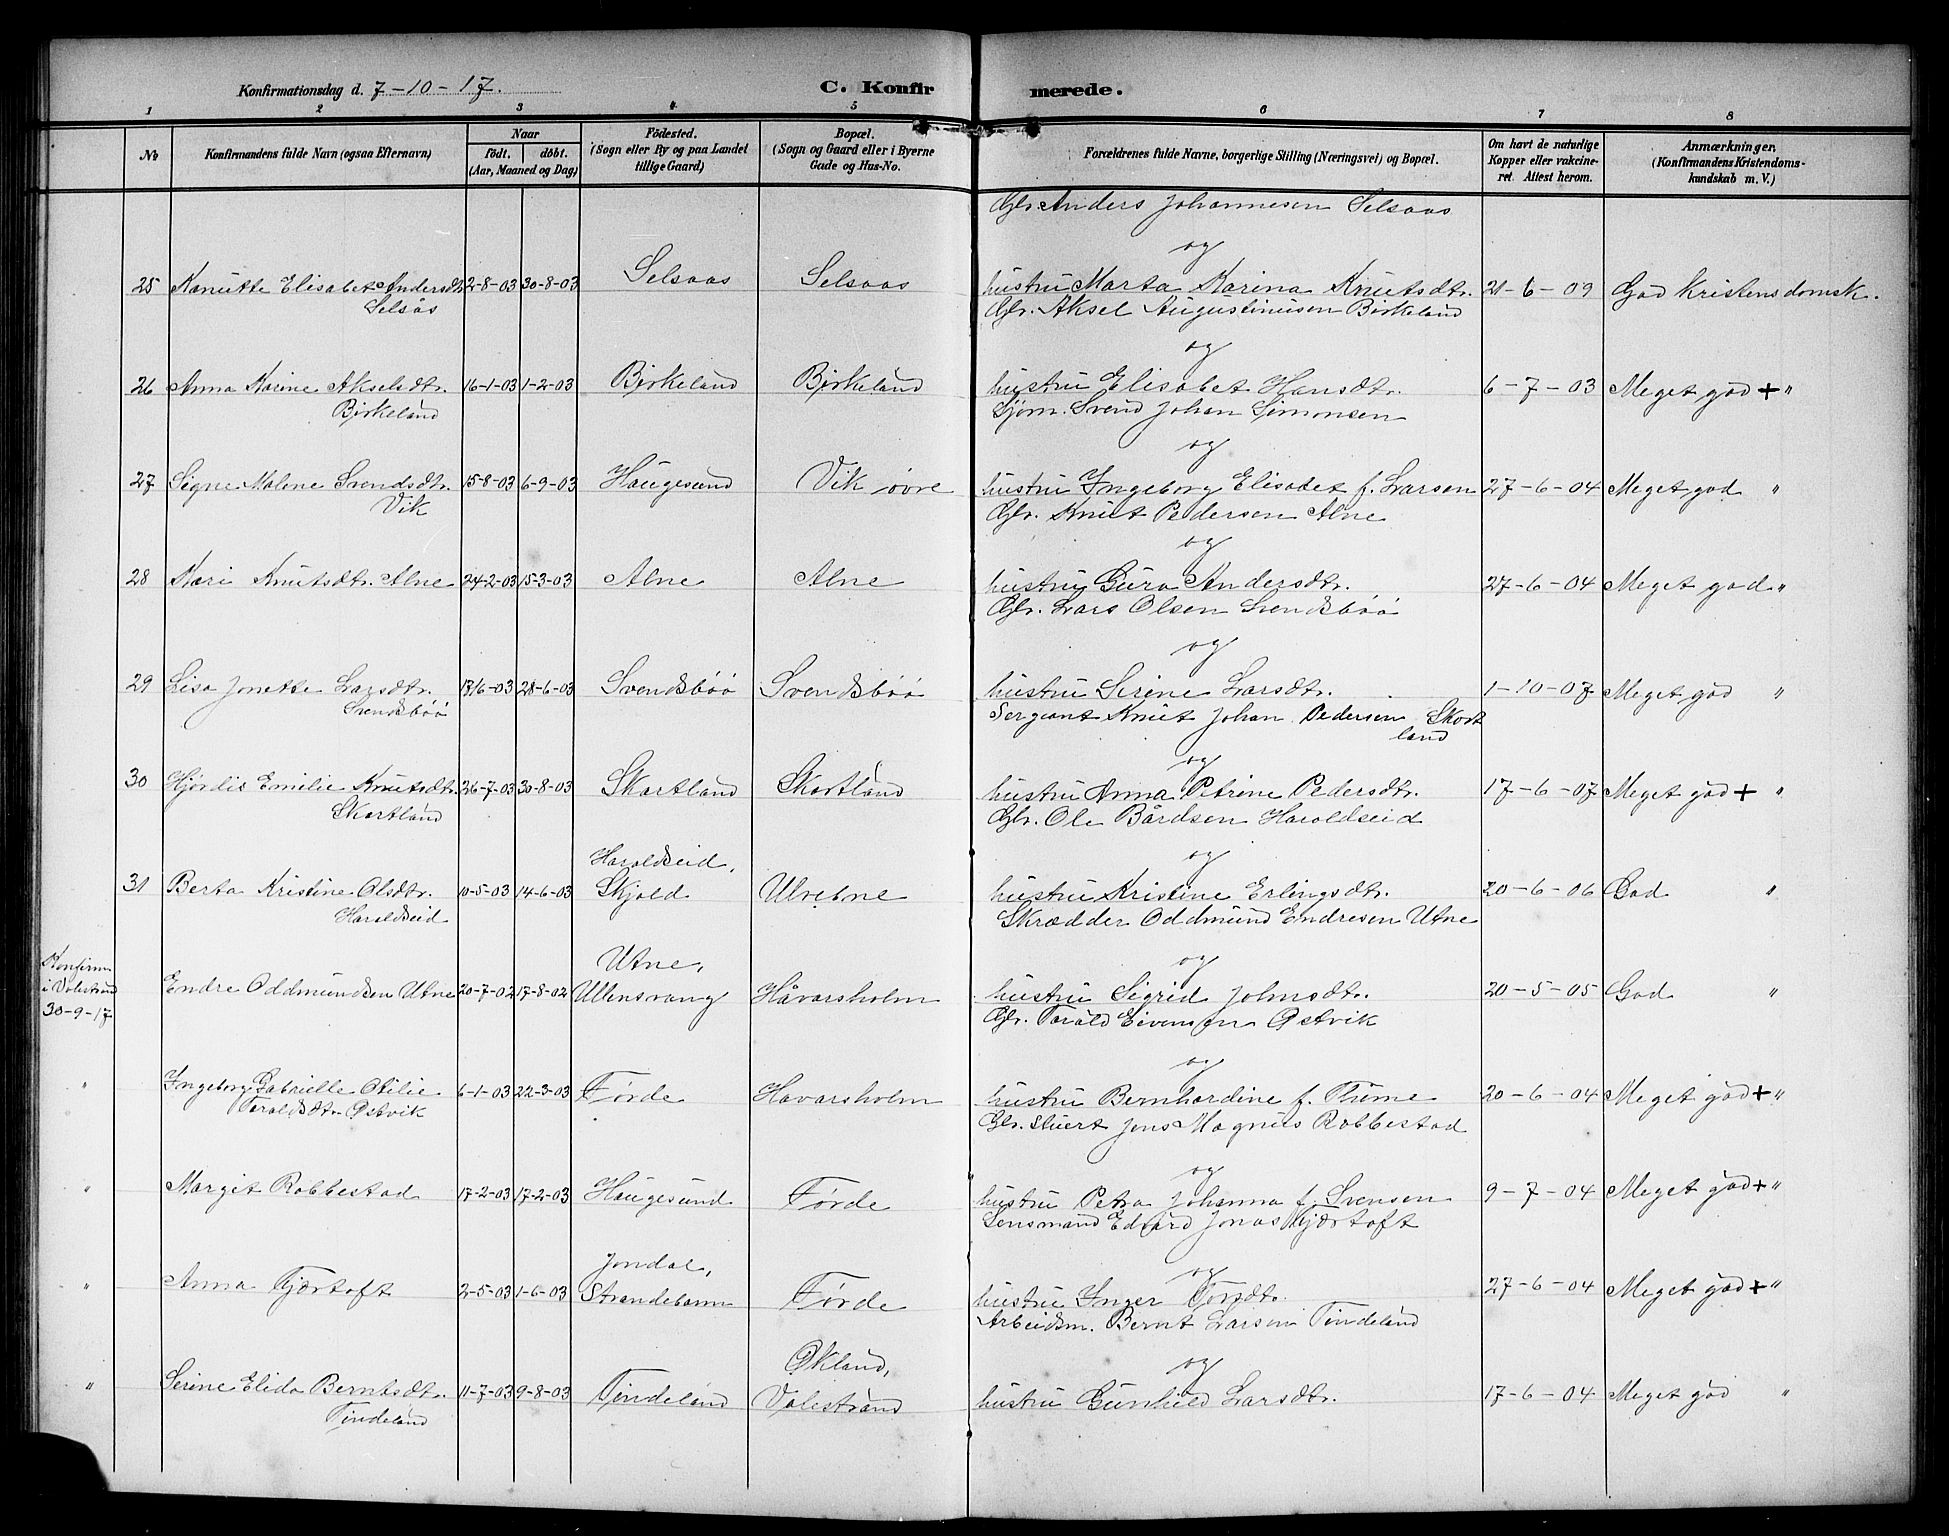 Konfirmationsdag d. 7-10-17. C. Konfirmerede.
1 2 3 4 5 6 7 8
No Konfirmandens fulde Navn (ogsaa Efternavn) Naar født. døbt. (Aar, Maaned og Dag) Fødested. (Sogn eller By og paa Landet tillige Gaard) Bopæl. (Sogn og Gaard eller i Byerne Gade og Hus-No. Forældrenes fulde Navne, borgerlige Stilling (Næringsvei) og Bopæl. Om havt de naturlige Kopper eller vakcineret. Attest herom. Anmærkninger, (Konfirmandens Kristendomskundskab m. V.)
Gbr. Anders Johannesen Selsaas
og
25 Kanutte Elisabet Andersdtr. 2-8-03 30-8-03 Selsaas Selsaas hustru Marta Karina Knutsdtr. 21-6-09 God Kristensdomsk.
Selsås Gbr. Aksel Augustinusen Birkeland
og
26 Anna Karine Akselsdtr. 16-1-03 1-2-03 Birkeland Birkeland hustru Elisabet Hansdtr. 6-7-03 Meget god + "
Birkeland Sjøm. Svend Johan Simonsen
og
27 Signe Malene Svendsdtr. 15-8-03 6-9-03 Haugesund Vik øvre hustru Ingeborg Elisabet f. Larsen 27-6-04 Meget god "
Vik Gbr. Knut Pedersen Alne
og
28 Kari Knutsdtr. Alne 24-2-03 15-3-03 Alne Alne hustru Guro Andersdtr. 27-6-04 Meget god "
Gbr. Lars Olsen Svendsbøø
og
29 Lisa Jonette Larsdtr. 13/6-03 28-6-03 Svendsbøø Svendsbøø hustru Serine Larsdtr. 1-10-07 Meget god "
Svendsbøø Sergiant Knut Johan Pedersen Skort
land
og
30 Hjørdis Emilie Knutsdtr. 26-7-03 30-8-03 Skortland Skortland hustru Anna Petrine Pedersdtr. 17-6-07 Meget god + "
Skortland Gbr. Ole Bårdsen Haroldseid
Haroldseid, og
31 Berta Kristine Olsdtr. 10-5-03 14-6-03 Skjold Ulvetne hustru Kristine Erlingsdtr. 20-6-06 God "
Haroldseid Skrædder Oddmund Endresen Utne
Konfirm. Utne, og
i Valestrand Endre Oddmundsen Utne 20-7-02 17-8-02 Ullensvang Håvarsholm hustru Sigrid Johnsdtr. 20-5-05 God "
30-9-17 Gbr. Torald Eivensen Østvik
og
" Ingeborg Gabrielle Otilie 6-1-03 22-3-03 Førde Havarsholm hustru Bernhardine f. Thime 20-6-04 Meget god + "
Taraldsdtr. Østvik Gbr. Stuert Jens Magnus Robbestad
og
" Margit Robbestad 17-2-03 17-2-03 Haugesund Førde hustru Petra Johanna f. Svensen 9-7-04 Meget god + "
Lensmand Edvard Jonas Fjærtoft
Jondal, og
" Anna Fjærtoft 2-5-03 1-6-03 Strandebarm Førde hustru Inger Torsdtr. 27-6-04 Meget god + "
Arbeidsm. Bernt Larsen Tindeland
Økland, og
" Serine Elida Berntsdtr. 11-7-03 9-8-03 Tindeland Valestrand hustru Gunhild Larsdtr. 17-6-04 Meget god "
Tindeland